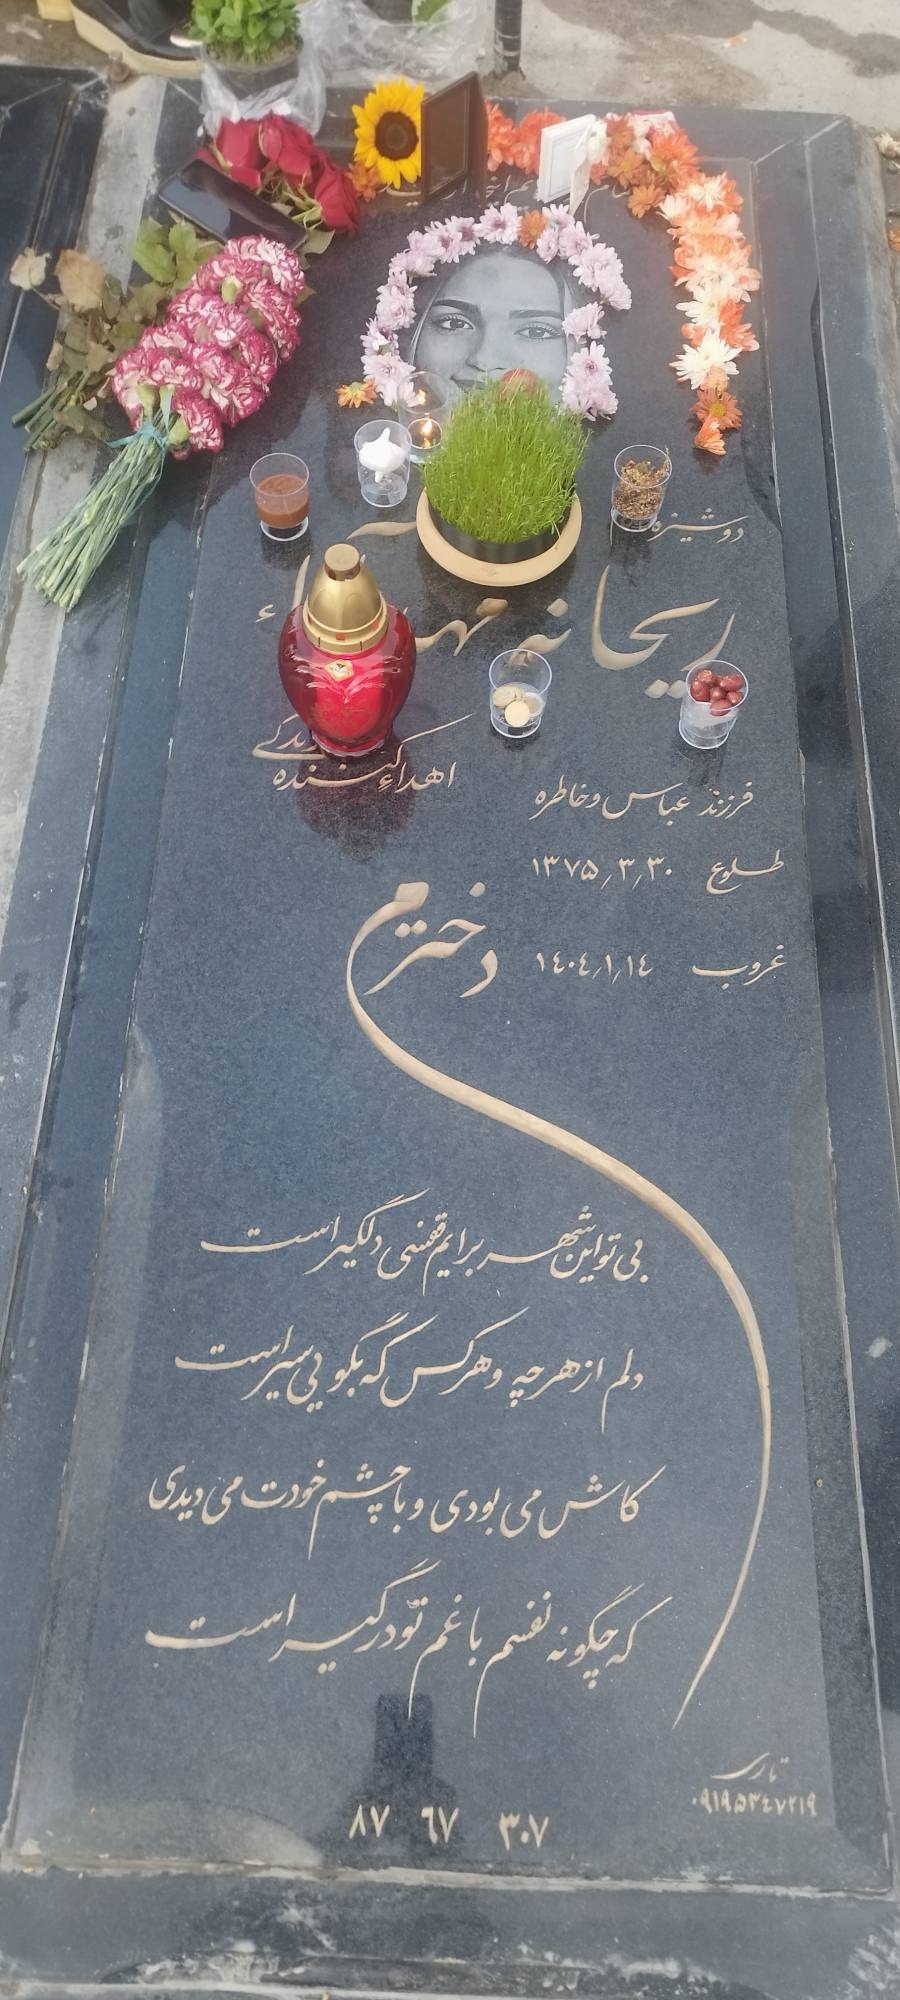 دوشیزه
ریحانه
اهداءکننده
فرزند عباس و خاطره
طلوع ۱۳۷۵/۳/۳۰
غروب ۱٤۰٤/۱/۱٤
دخترم
بی تو این شهر برایم قفسی دلگیر است
دلم از هر چه و هر کس که بگویی سیر است
کاش می بودی و با چشم خودت می دیدی
که چگونه نفسم با غم تو درگیر است
۰۹۱۹۵۳٤۷۲۱۹
۳۰۷ ۶۷ ۸۷